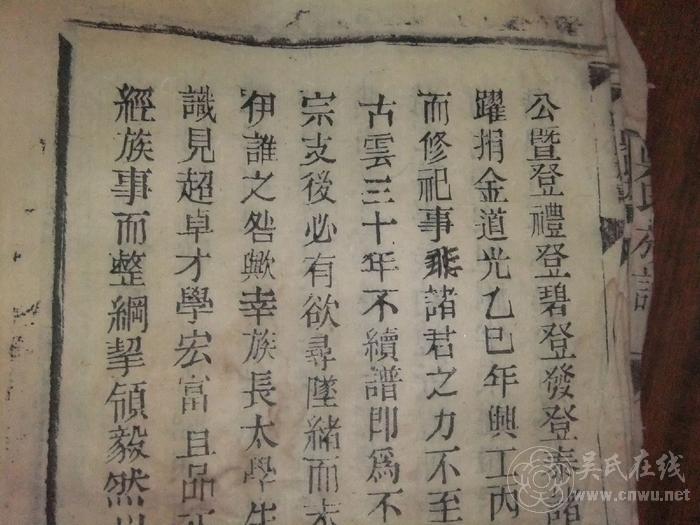 公暨登禮登碧登發登泰諸
躍捐金道光乙巳年興工丙
而修祀事非諸君之力不至
古雲三十年不續譜即為不
宗支後必有欲尋墜緒而未
伊誰之咎歟幸族長太學生
識見超卓才學宏富且品正
經族事而整綱挈領毅然以
吳氏在线
www.cnwu.net